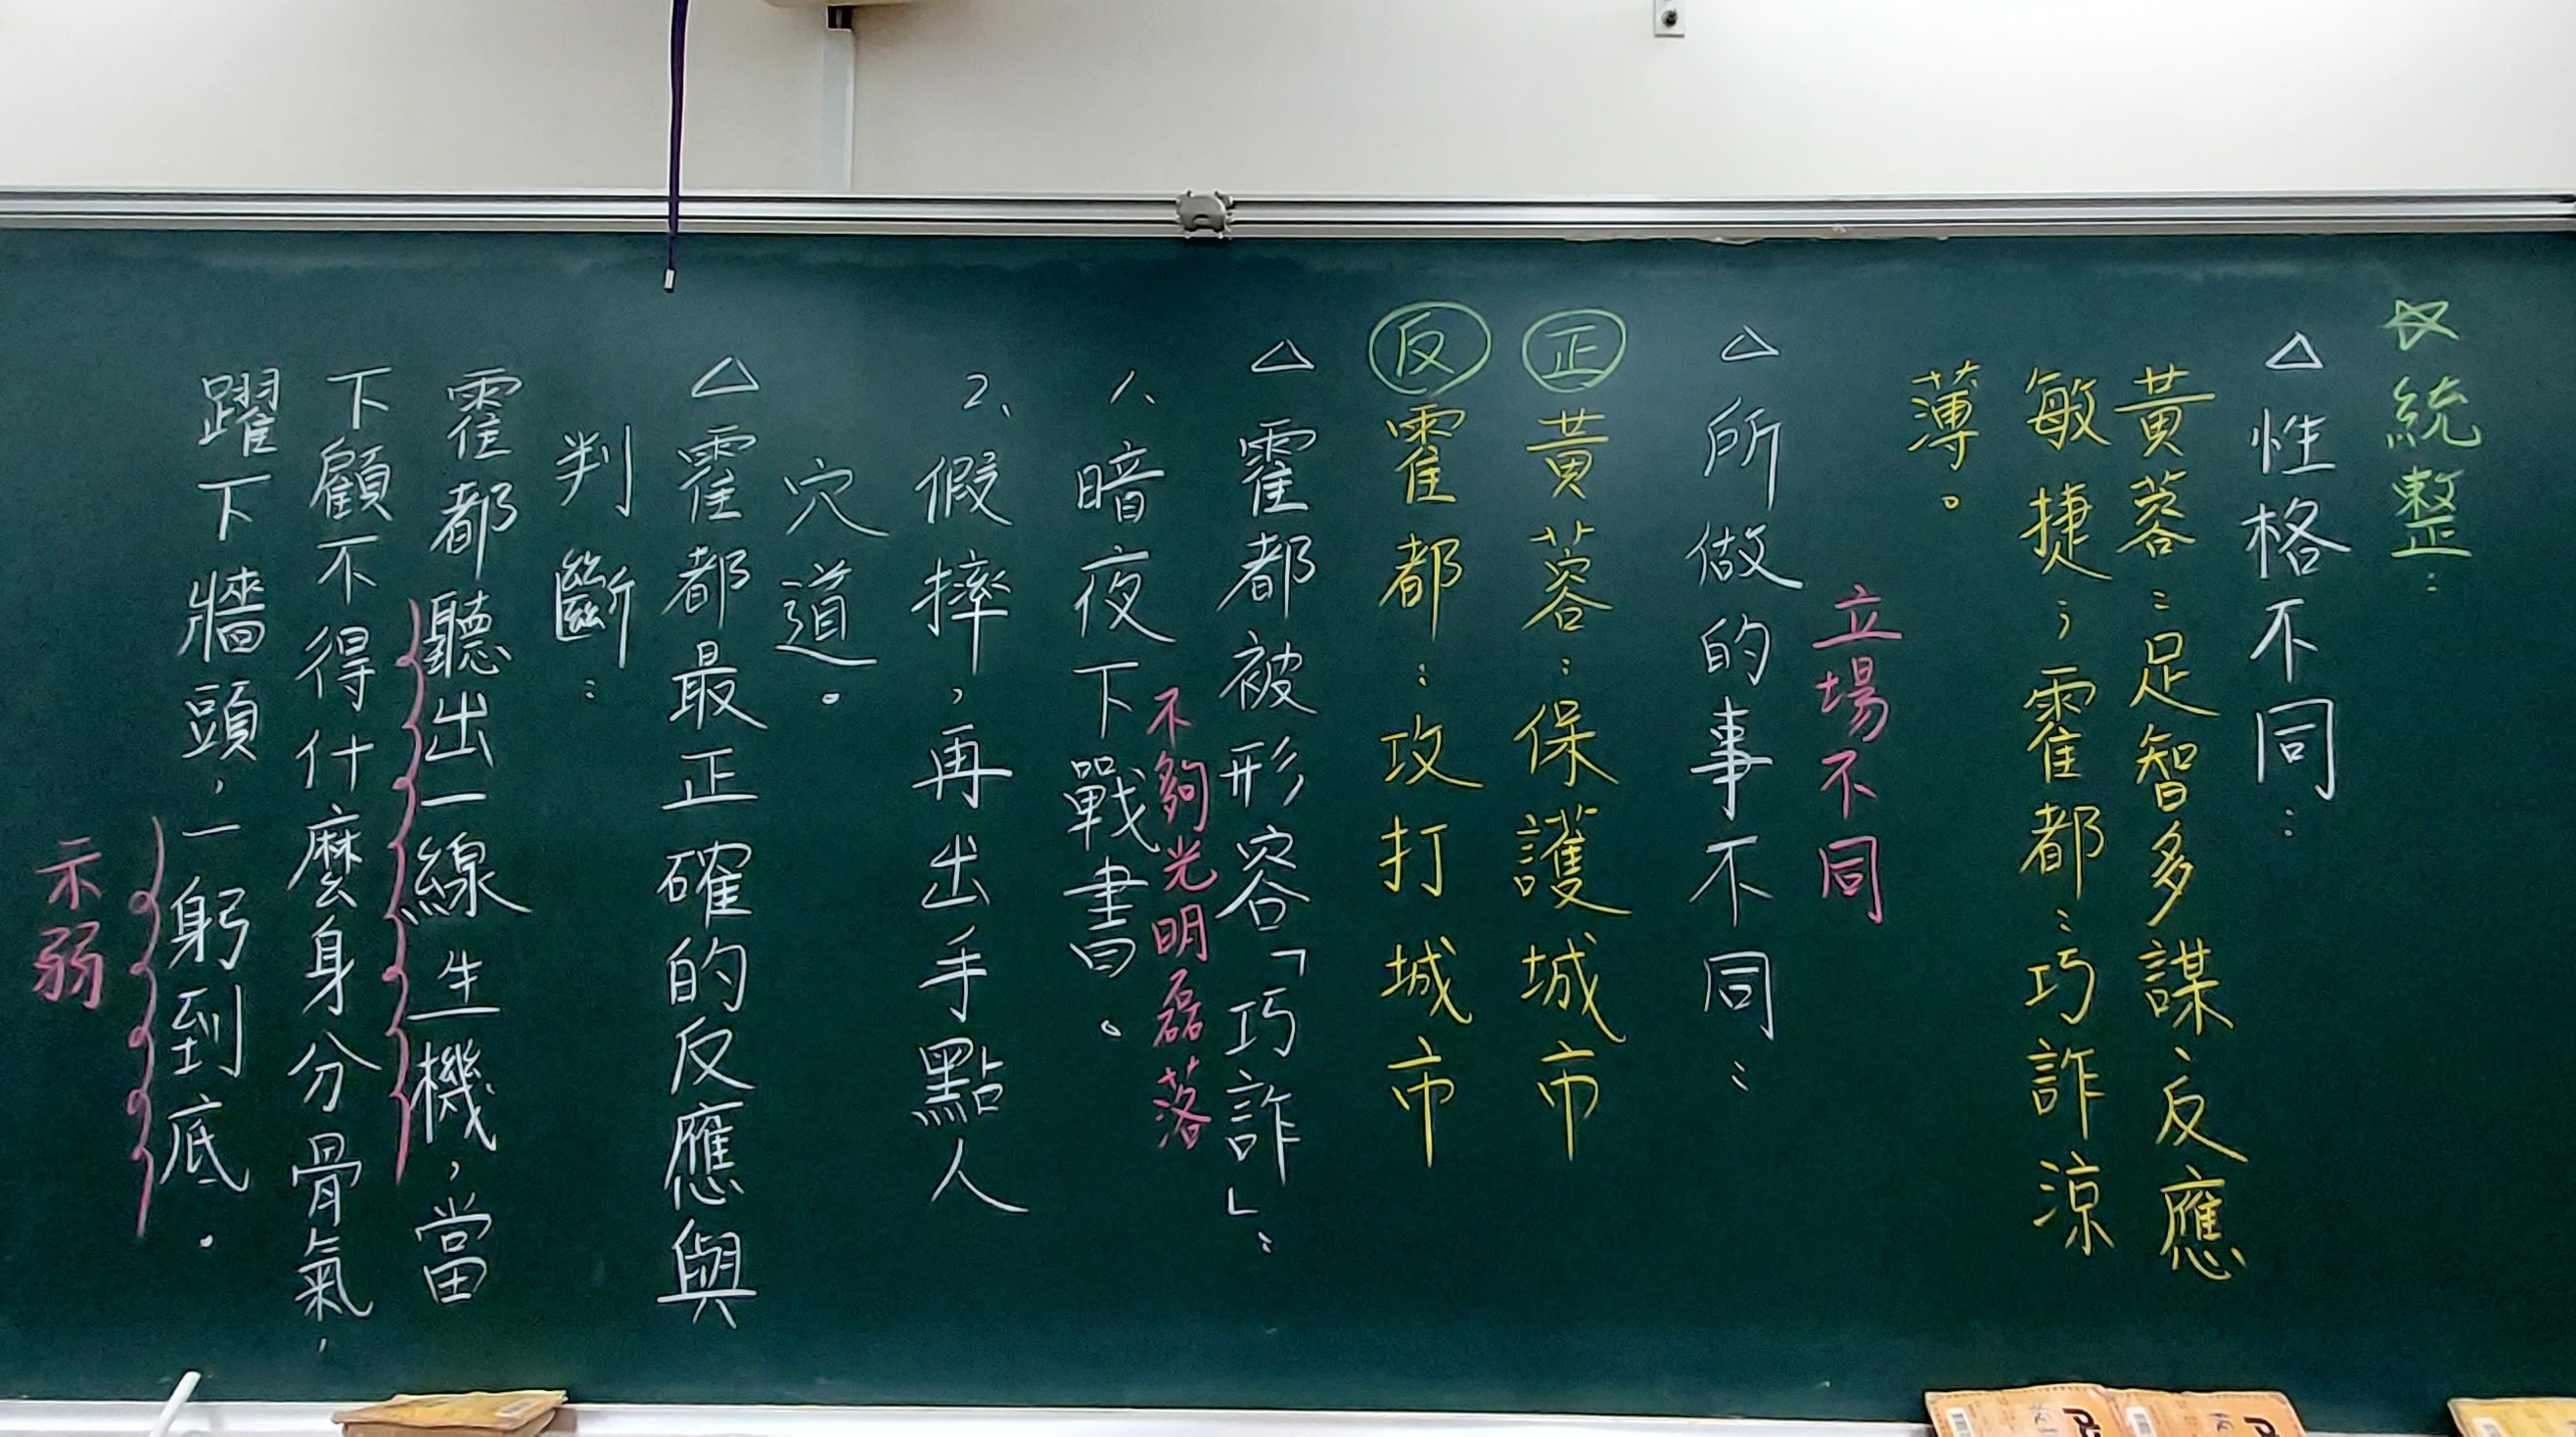 ☆統整：
△性格不同：
黃蓉：足智多謀、反應
敏捷；霍都：巧詐涼
薄。
立場不同
△所做的事不同：
正 黃蓉：保護城市
反 霍都：攻打城市
△霍都被形容「巧詐」：
不夠光明磊落
1、暗夜下戰書。
2、假摔，再出手點人
穴道。
△霍都最正確的反應與
判斷：
霍都聽出一線生機，當
下顧不得什麼身分骨氣，
躍下牆頭，一躬到底。
示弱